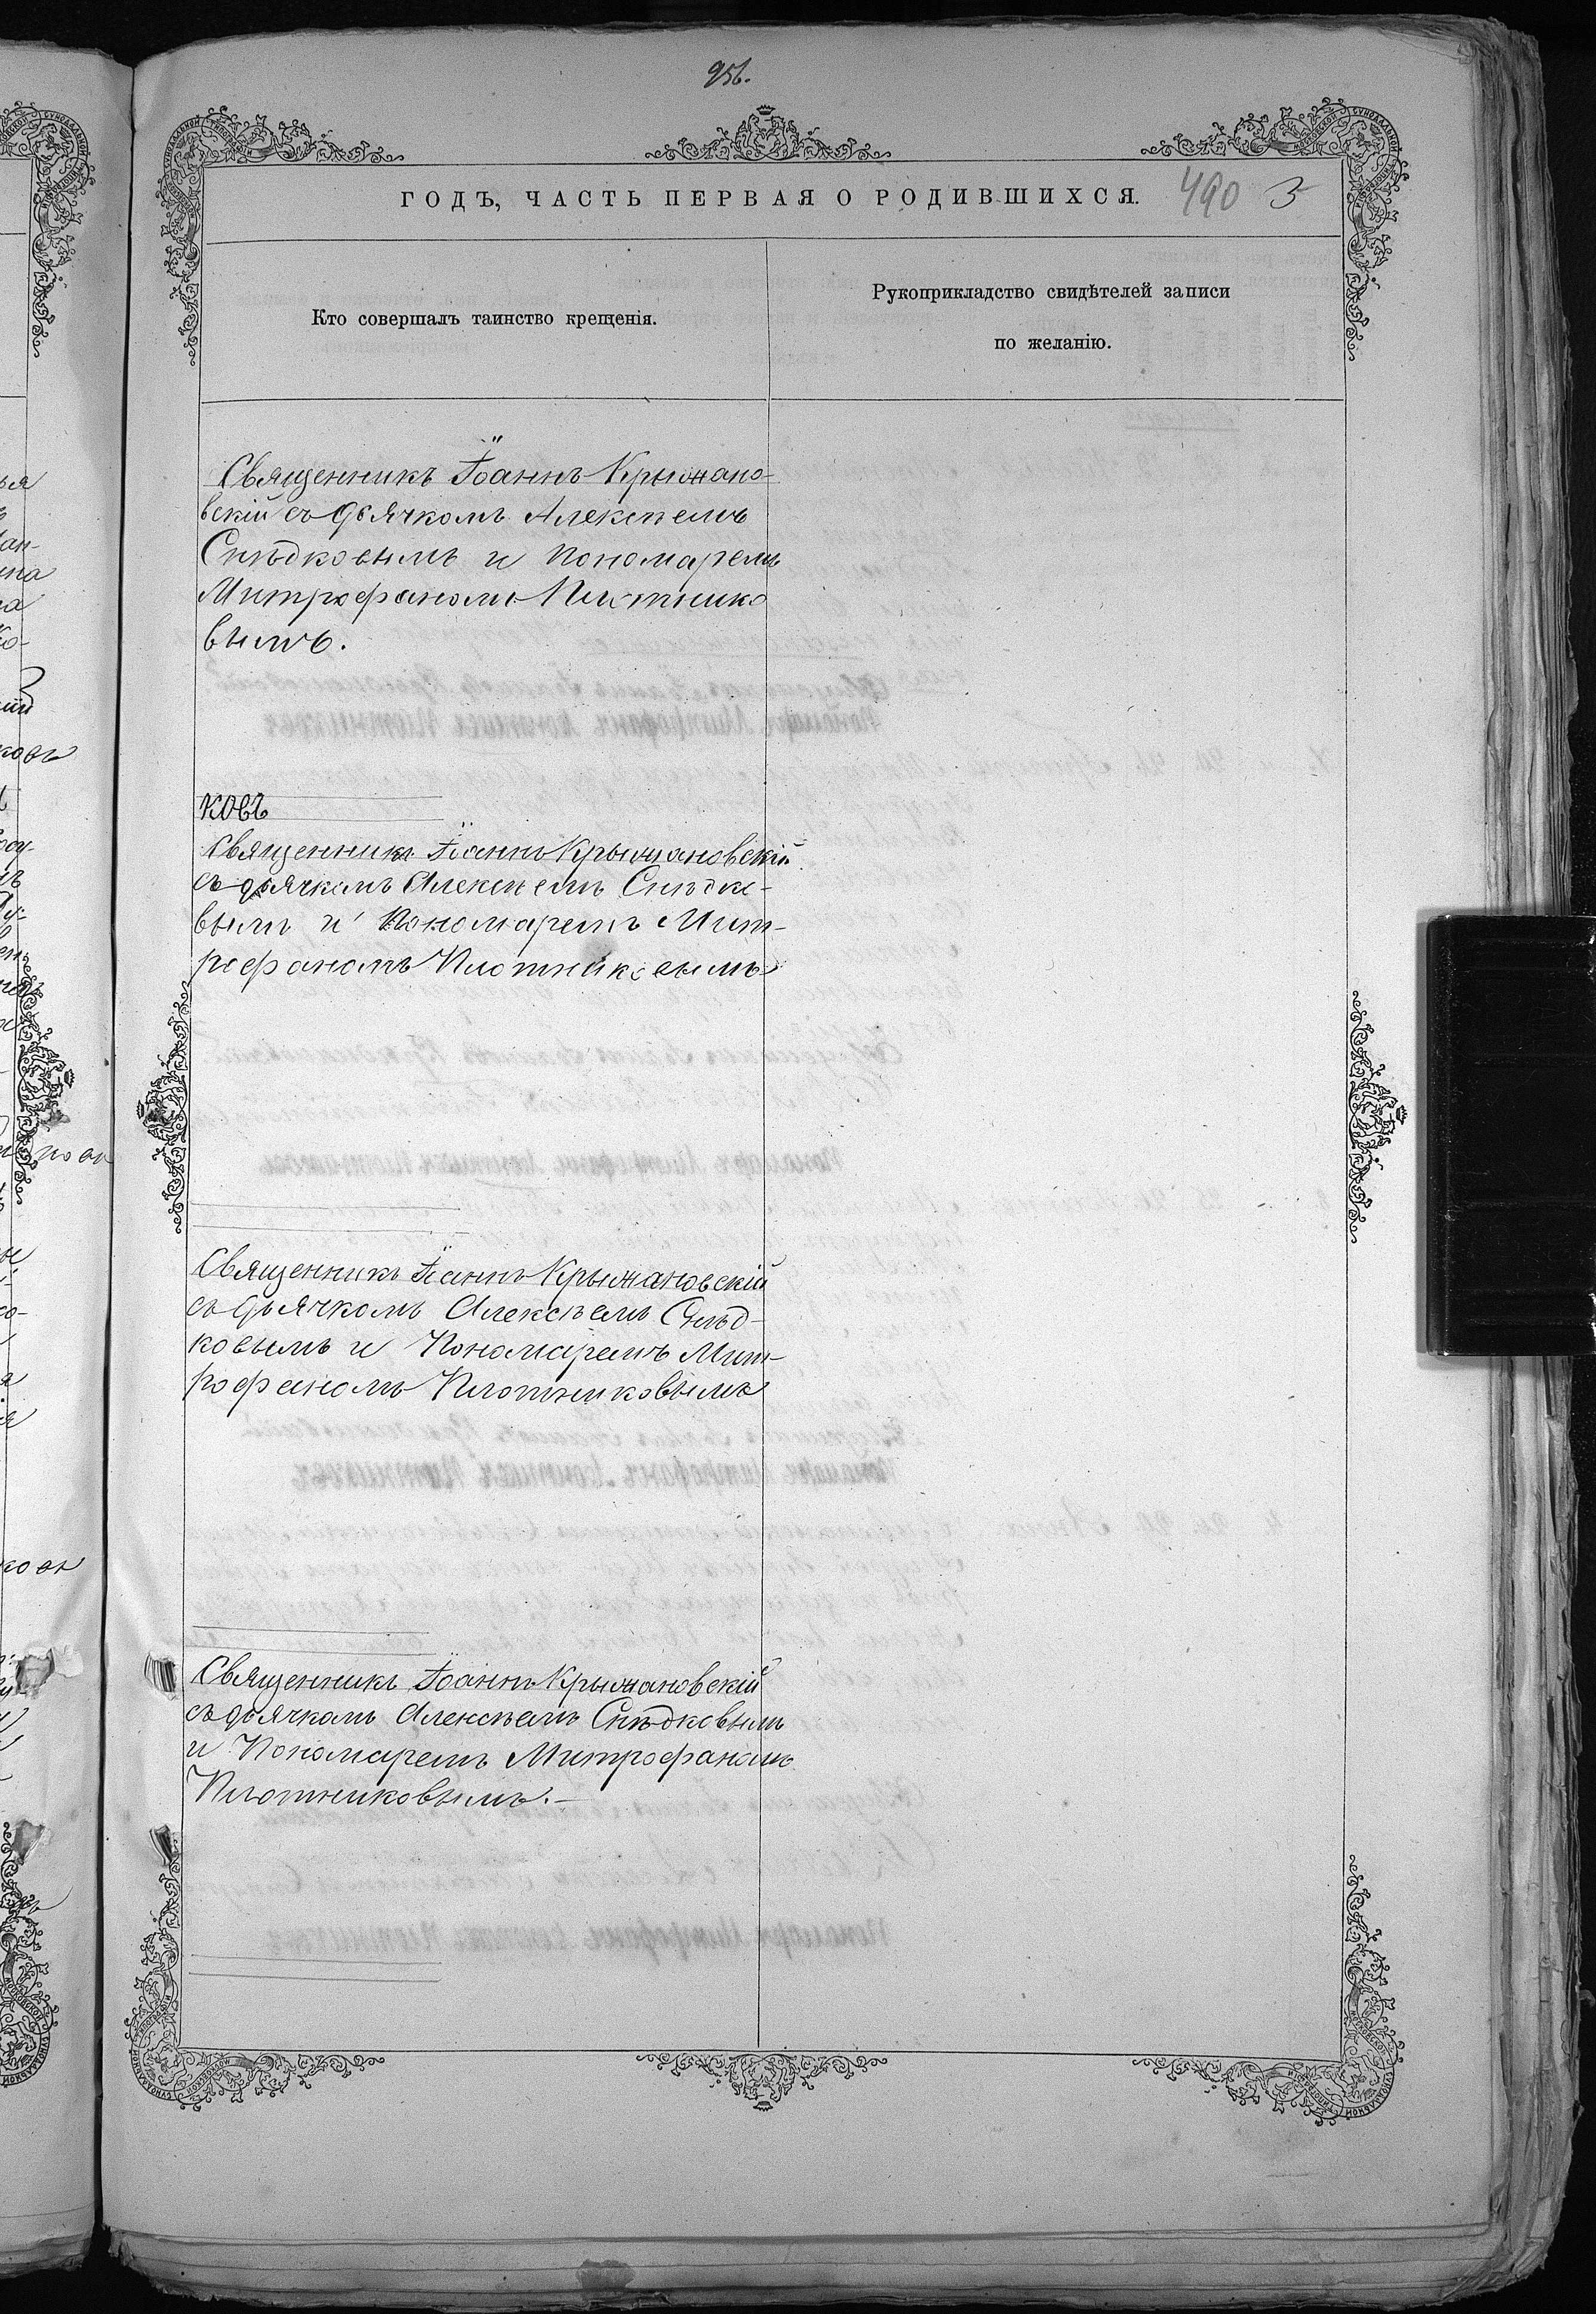 956.
ГОДЪ, ЧАСТЬ ПЕРВАЯ О РОДИВШИХСЯ.
490 3
Кто совершалъ таинство крещенія.
Рукоприкладство свидѣтелей записи
по желанію.
Священникъ Іоаннъ Крыжано-
вскій съ дьячкомъ Алексѣемъ
Снѣдковымъ и пономаремъ
Митрофаномъ Плотнико
вымъ.
ковъ
Священникъ Іоаннъ Крыжановскій
съ дьячкомъ Алексѣемъ Снѣдко-
вымъ и Пономаремъ Мит-
рофаномъ Плотниковымъ
Священникъ Іоаннъ Крыжановскій
съ дьячкомъ Алексѣемъ Снѣд-
ковымъ и Пономаремъ Мит-
рофаномъ Плотниковымъ
Священникъ Іоаннъ Крыжановскій
съ дьячкомъ Алексѣемъ Снѣдковымъ
и Пономаремъ Митрофаномъ
Плотниковымъ.-